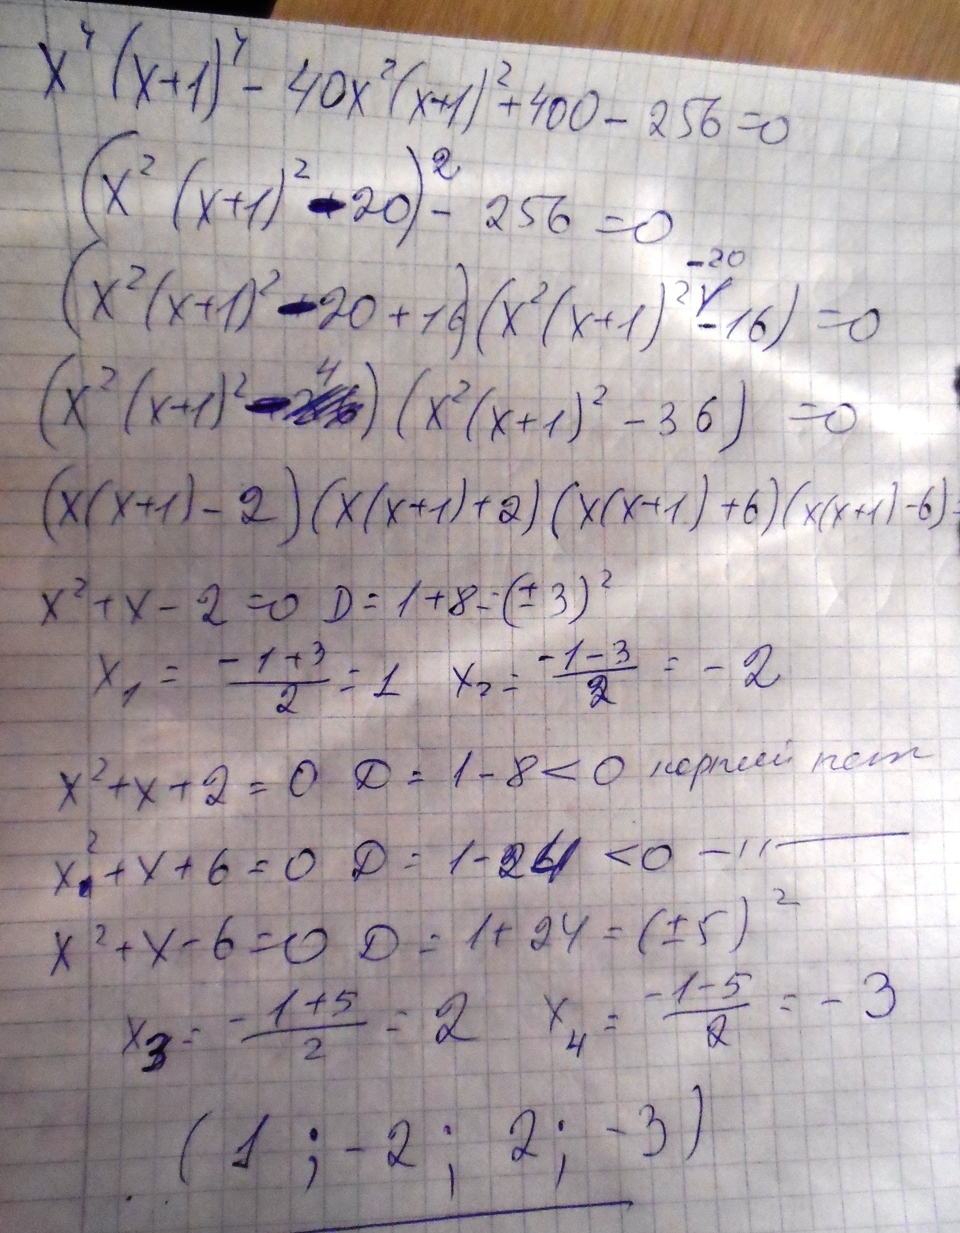 x⁴(x+1)⁴ - 40x²(x+1)² + 400 - 256 = 0
(x²(x+1)² - 20)² - 256 = 0
(x²(x+1)² - 20 + 16)(x²(x+1)² - 20 - 16) = 0
(x²(x+1)² - 4)(x²(x+1)² - 36) = 0
(x(x+1) - 2)(x(x+1) + 2)(x(x+1) + 6)(x(x+1) - 6) =
x² + x - 2 = 0 D = 1 + 8 = (±3)²
x₁ = (-1+3)/2 = 1 x₂ = (-1-3)/2 = -2
x² + x + 2 = 0 D = 1 - 8 < 0 корней нет
x² + x + 6 = 0 D = 1 - 24 < 0 —''—
x² + x - 6 = 0 D = 1 + 24 = (±5)²
x₃ = (-1+5)/2 = 2 x₄ = (-1-5)/2 = -3
(1; -2; 2; -3)